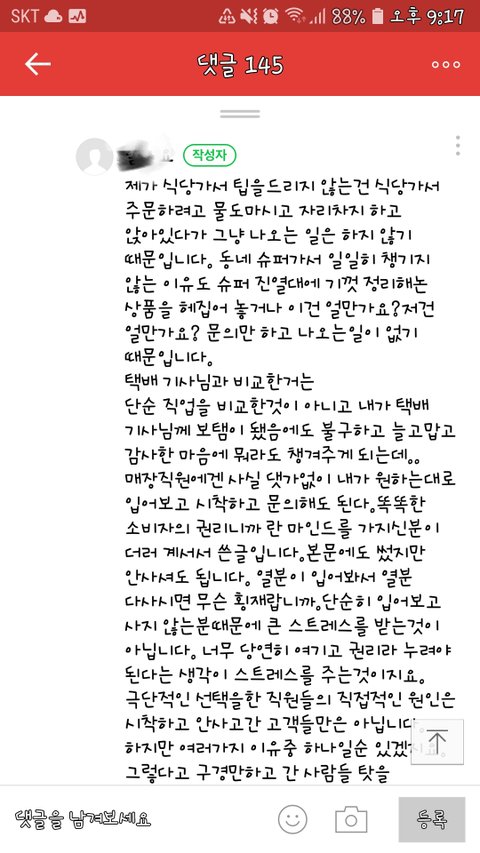 SKT 88% 오후 9:17
댓글 145
작성자
제가 식당가서 팁을드리지 않는건 식당가서
주문하려고 물도마시고 자리차지 하고
앉아있다가 그냥 나오는 일은 하지 않기
때문입니다. 동네 슈퍼가서 일일히 챙기지
않는 이유도 슈퍼 진열대에 기껏 정리해논
상품을 헤집어 놓거나 이건 얼만가요?저건
얼만가요? 문의만 하고 나오는일이 없기
때문입니다.
택배 기사님과 비교한거는
단순 직업을 비교한것이 아니고 내가 택배
기사님께 보탬이 됐음에도 불구하고 늘고맙고
감사한 마음에 뭐라도 챙겨주게 되는데。。
매장직원에겐 사실 댓가없이 내가 원하는대로
입어보고 시착하고 문의해도 된다.똑똑한
소비자의 권리니까 란 마인드를 가지신분이
더러 계셔서 쓴글입니다.본문에도 썼지만
안사셔도 됩니다. 열분이 입어봐서 열분
다사시면 무슨 횡재랍니까.단순히 입어보고
사지 않는분때문에 큰 스트레스를 받는것이
아닙니다. 너무 당연히 여기고 권리라 누려야
된다는 생각이 스트레스를 주는것이지요.
극단적인 선택을한 직원들의 직접적인 원인은
시착하고 안사고간 고객들만은 아닙니다.
하지만 여러가지 이유중 하나일순 있겠지요.
그렇다고 구경만하고 간 사람들 탓을
댓글을 남겨보세요
등록